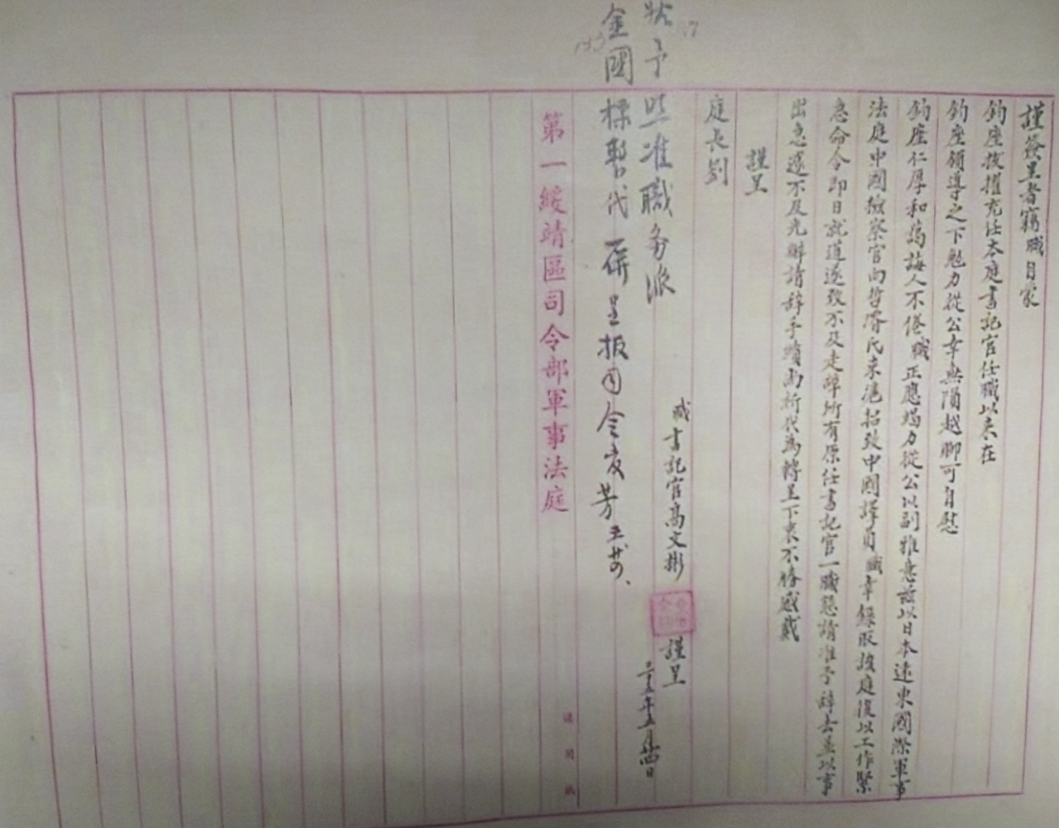 謹簽呈者竊職自蒙
鈞座拔擢充任本庭書記官任職以来在
鈞座領導之下勉力從公幸無隕越聊可自慰
鈞座仁厚和藹誨人不倦職正應竭力從公以副雅意茲以日本遠東國際軍事
法庭中國檢察官向哲濬氏来滬招致中國譯員職幸錄取該庭復以工作緊
急命令即日就道遂致不及走辭所有原任書記官一職懇請准予辭去并以事
出急遽不及先辦請辭手續尚祈代為轉呈下衷不勝感戴
謹呈
庭長劉
職書記官高文彬 謹呈
五月廿四日
准職務派
金國標暫代
第一綏靖區司令部軍事法庭